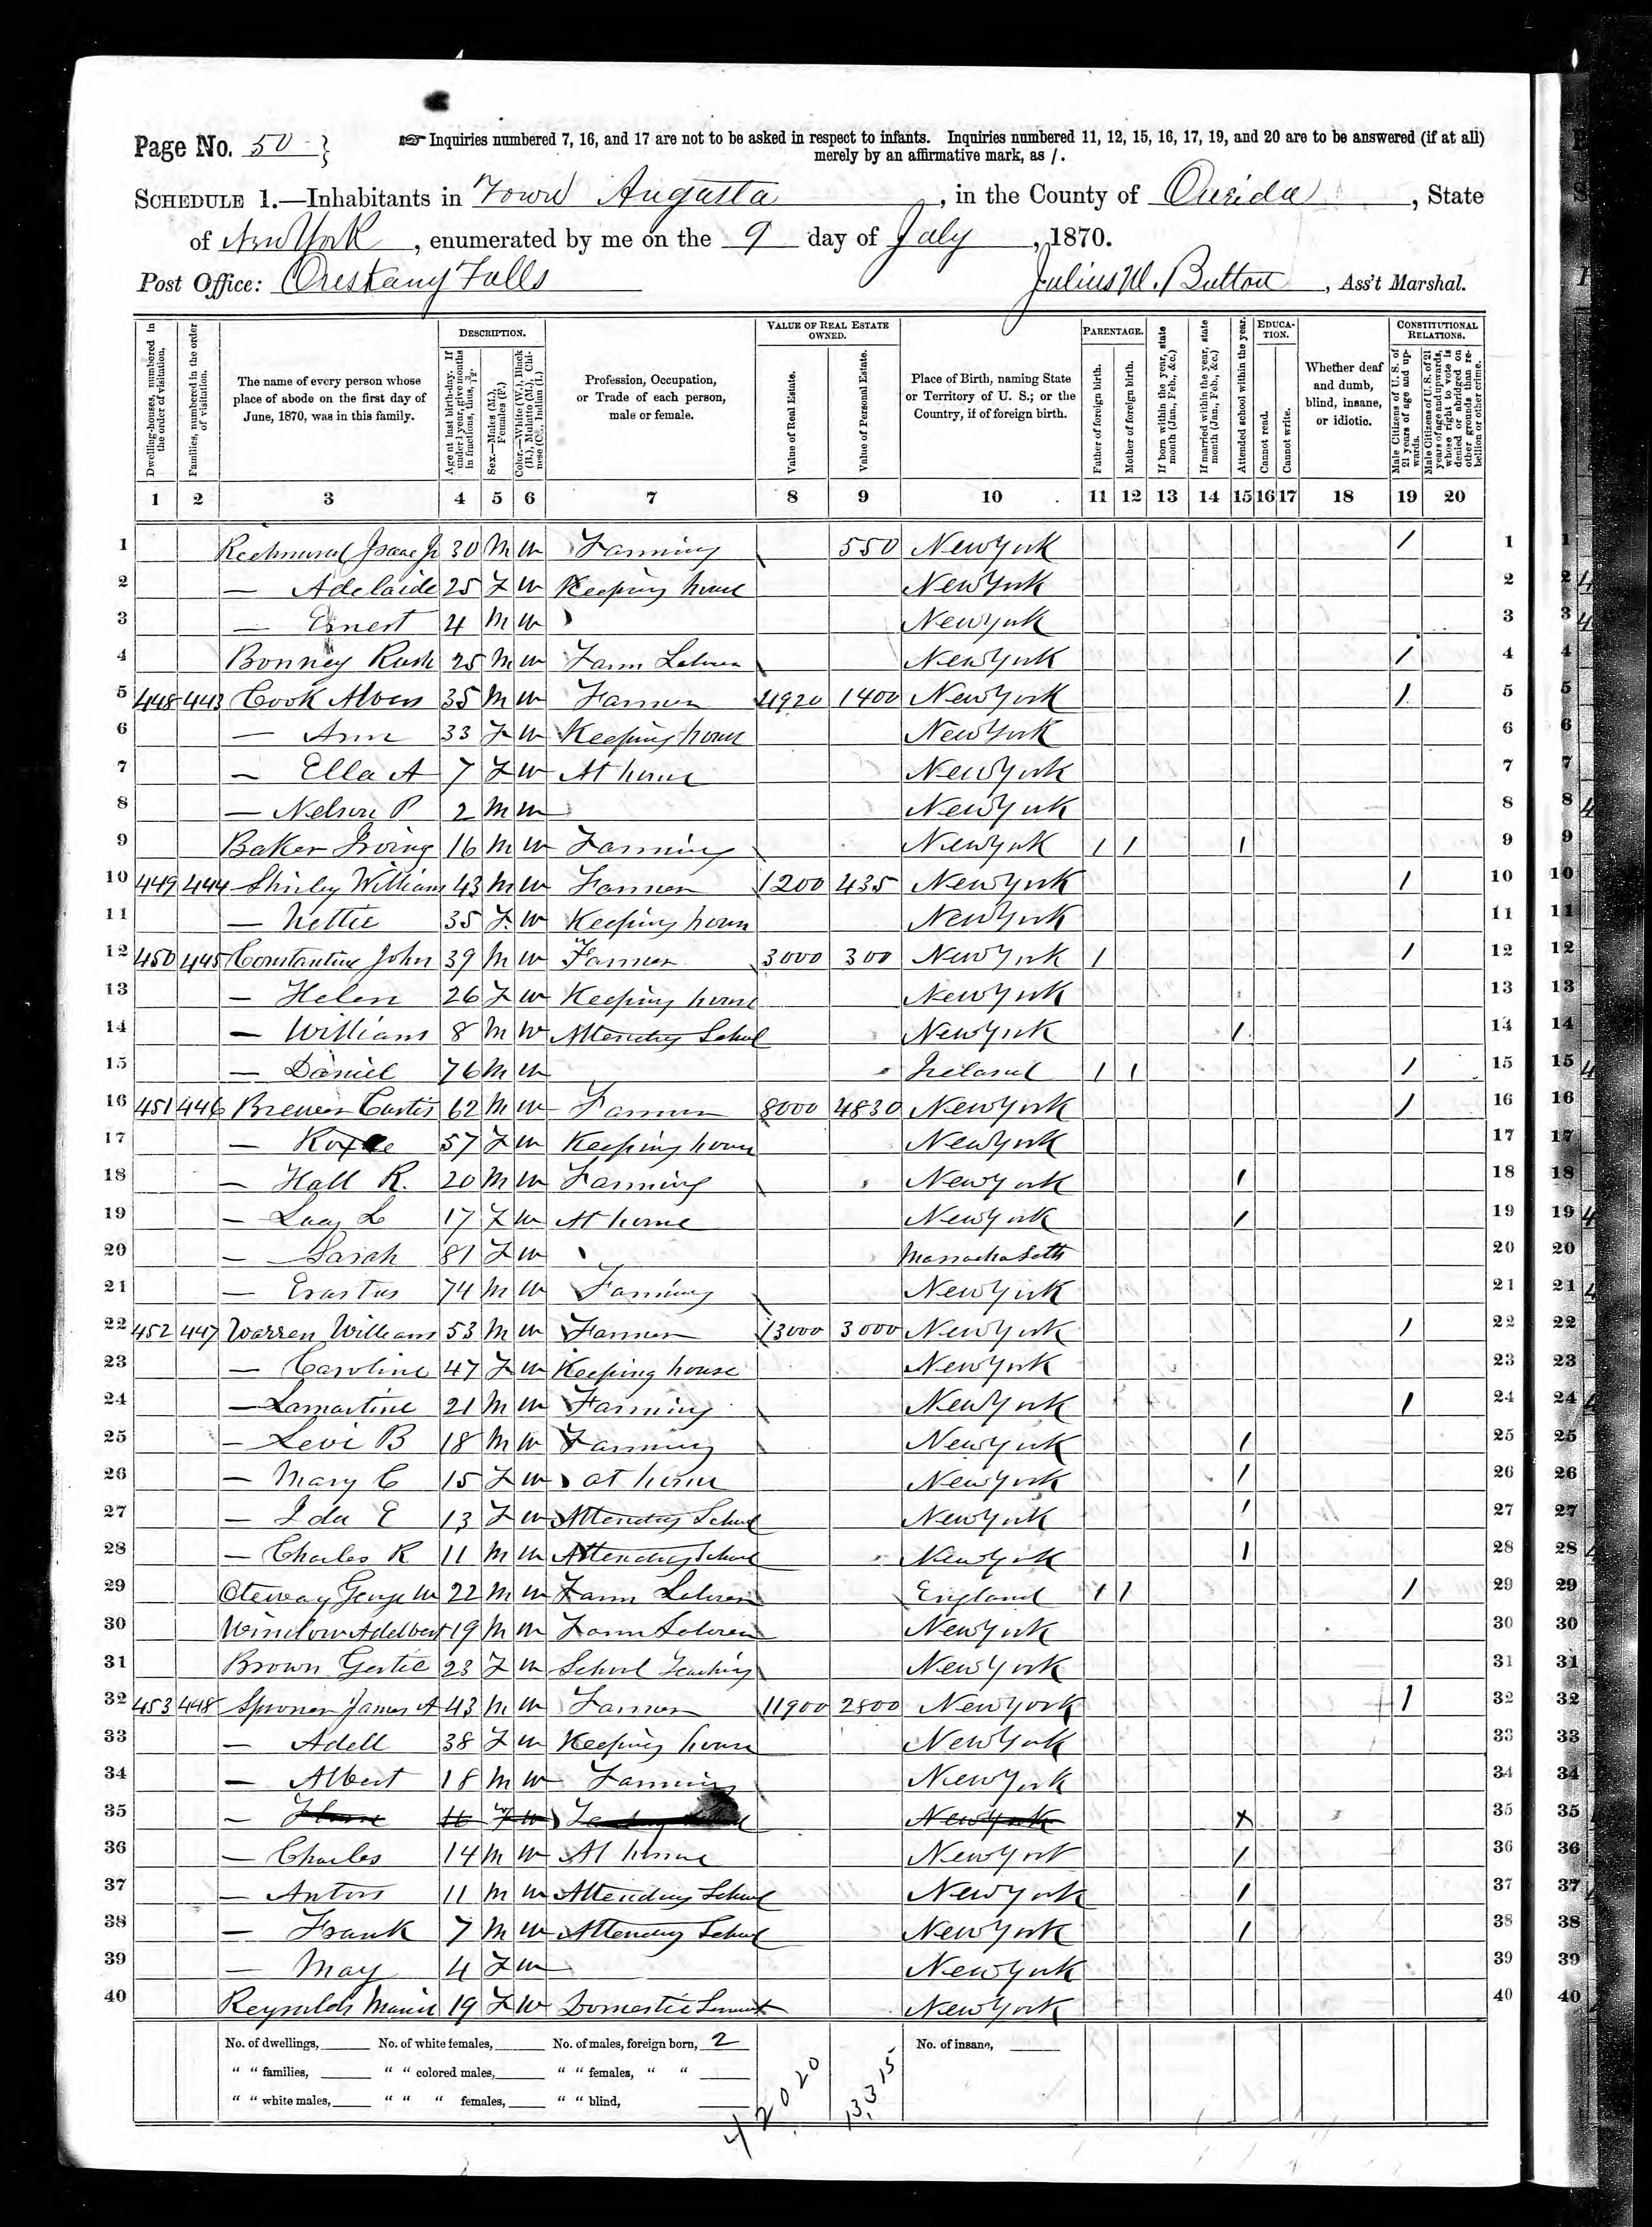 Page No. 50 }
☞ Inquiries numbered 7, 16, and 17 are not to be asked in respect to infants. Inquiries numbered 11, 12, 15, 16, 17, 19, and 20 are to be answered (if at all)
merely by an affirmative mark, as /.
SCHEDULE 1.—Inhabitants in Town Augusta, in the County of Oneida, State
of New York, enumerated by me on the 9 day of July, 1870.
Post Office: Oriskany Falls Julius M. Button, Ass't Marshal.
Dwelling-houses, numbered in the order of visitation.
Families, numbered in the order of visitation.
The name of every person whose place of abode on the first day of June, 1870, was in this family.
DESCRIPTION.
Age at last birth-day. If under 1 year, give months in fractions, thus, 3/12.
Sex.—Males (M.), Females (F.)
Color.—White (W.), Black (B.), Mulatto (M.), Chinese (C.), Indian (I.)
Profession, Occupation, or Trade of each person, male or female.
VALUE OF REAL ESTATE OWNED.
Value of Real Estate.
Value of Personal Estate.
Place of Birth, naming State or Territory of U. S.; or the Country, if of foreign birth.
PARENTAGE.
Father of foreign birth.
Mother of foreign birth.
If born within the year, state month (Jan., Feb., &c.)
If married within the year, state month (Jan., Feb., &c.)
Attended school within the year.
EDUCATION.
Cannot read.
Cannot write.
Whether deaf and dumb, blind, insane, or idiotic.
CONSTITUTIONAL RELATIONS.
Male Citizens of U. S. of 21 years of age and upwards.
Male Citizens of U. S. of 21 years of age and upwards, whose right to vote is denied or abridged on other grounds than rebellion or other crime.
1 2 3 4 5 6 7 8 9 10 11 12 13 14 15 16 17 18 19 20
1 Richmond Isaac Jr 30 M W Farming 550 New York / 1
2 — Adelaide 25 F W Keeping house New York 2
3 — Ernest 4 M W New York 3
4 Bonney Rush 25 M W Farm Laborer New York / 4
5 448 443 Cook 35 M W Farmer 4920 1400 New York / 5
6 — Ann 33 F W Keeping house New York 6
7 — Ella A 7 F W At home New York 7
8 — Nelson P 2 M W New York 8
9 Baker Irving 16 M W Farming New York / / / 9
10 449 444 Shirley William 43 M W Farmer 1200 435 New York / 10
11 — Nettie 35 F W Keeping house New York 11
12 450 445 Constantine John 39 M W Farmer 3000 300 New York / / 12
13 — Helen 26 F W Keeping house New York 13
14 — William 8 M W Attending School New York / 14
15 — Daniel 76 M W Ireland / / / 15
16 451 446 Brewer Curtis 62 M W Farmer 8000 4830 New York / 16
17 — 57 F W Keeping house New York 17
18 — Hall R. 20 M W Farming New York / 18
19 — Lucy L 17 F W At home New York / 19
20 — Sarah 81 F W Massachusetts 20
21 — Erastus 74 M W Farming New York 21
22 452 447 Warren William 53 M W Farmer 13000 3000 New York / 22
23 — Caroline 47 F W Keeping house New York 23
24 — Lamartine 21 M W Farming New York / 24
25 — Levi B 18 M W Farming New York / 25
26 — Mary C 15 F W at home New York / 26
27 — Ida E 13 F W Attending School New York / 27
28 — Charles R 11 M W Attending School New York / 28
29 Oteway George W 22 M W Farm Laborer England / / / 29
30 Winslow Adelbert 19 M W Farm Laborer New York 30
31 Brown Gertie 23 F W School Teaching New York 31
32 453 448 Spooner James A 43 M W Farmer 11900 2800 New York / 32
33 — Adell 38 F W Keeping house New York 33
34 — Albert 18 M W Farming New York 34
35 — 16 F W New York X 35
36 — Charles 14 M W At home New York / 36
37 — 11 M W Attending School New York / 37
38 — Frank 7 M W Attending School New York / 38
39 — May 4 F W New York 39
40 Reynolds 19 F W Domestic Servant New York 40
No. of dwellings, No. of white females, No. of males, foreign born, 2 No. of insane,
" " families, " " colored males, " " females, " "
" " white males, " " " females, " " blind,
42020 13,315